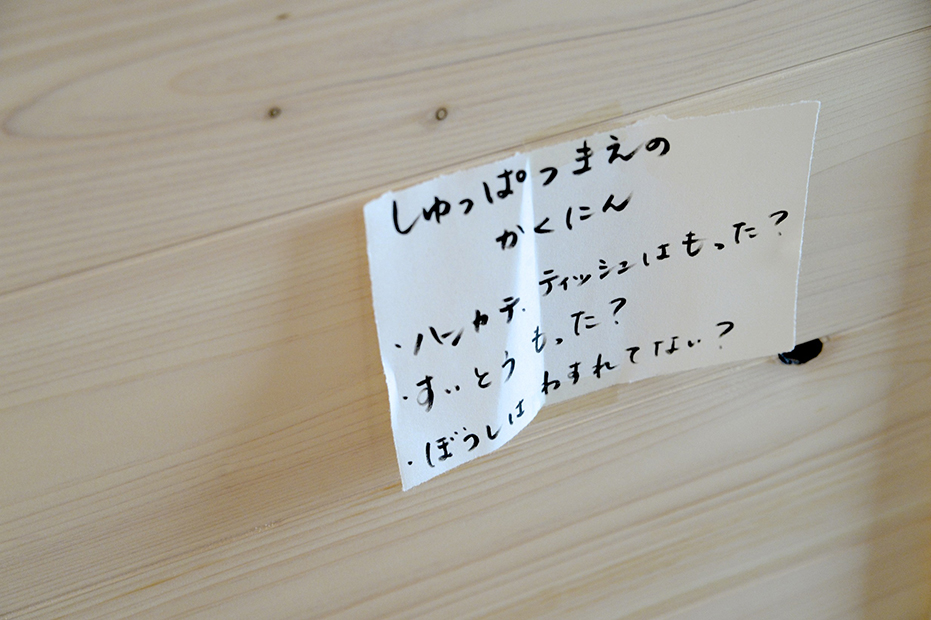 しゅっぱつまえの
かくにん
・ハンカチ、ティッシュはもった?
・すいとうもった?
・ぼうしはわすれてない?